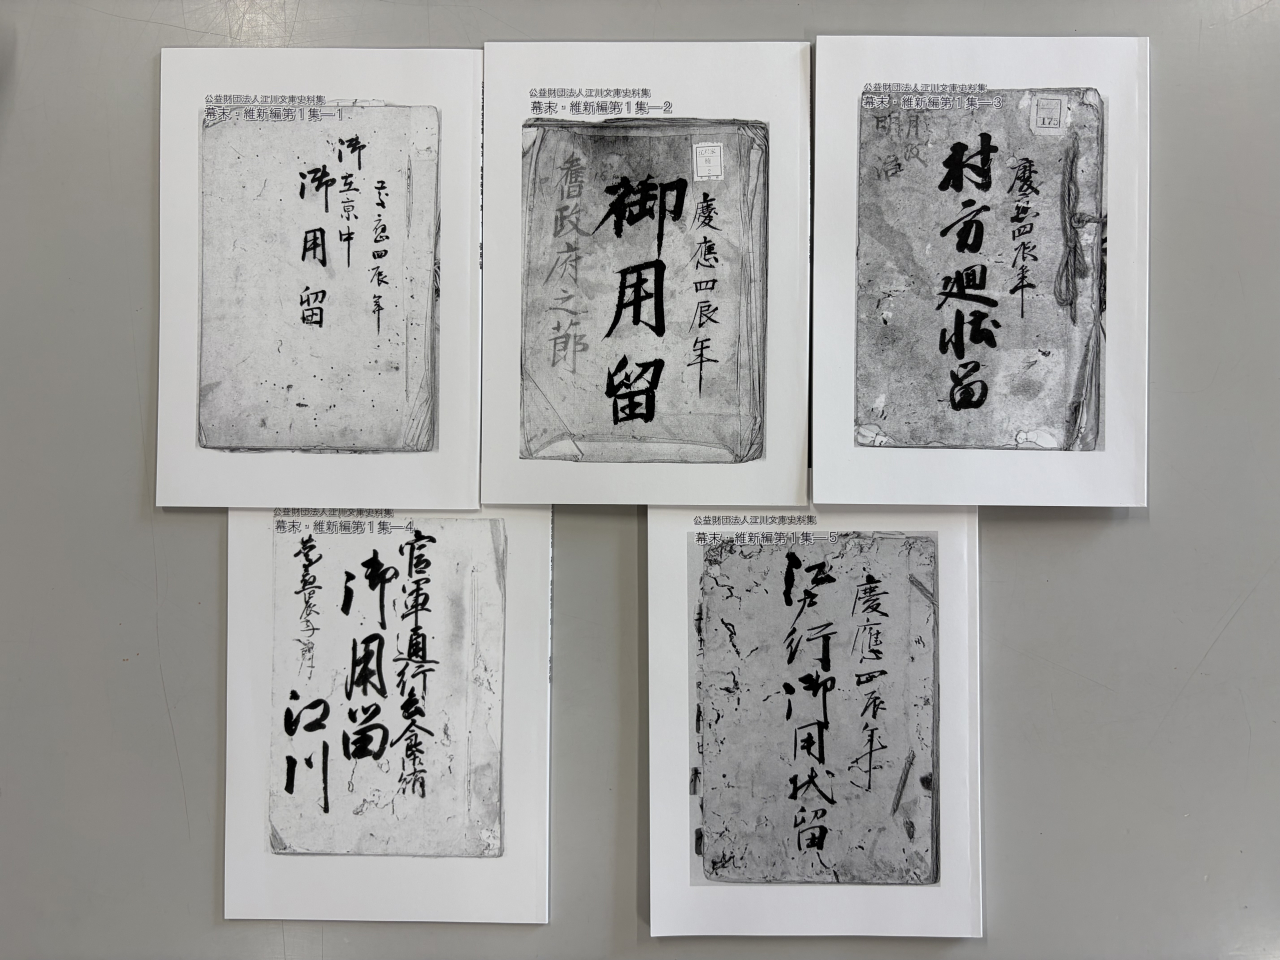 公益財団法人江川文庫史料集
幕末・維新編第1集―1
慶應四辰年
御在京中
御用留
公益財団法人江川文庫史料集
幕末・維新編第1集―2
慶應四辰年
御用留
舊政府之節
公益財団法人江川文庫史料集
幕末・維新編第1集―3
175
慶應四辰年
村方廻状留
明治
公益財団法人江川文庫史料集
幕末・維新編第1集―4
官軍通行
御用留
江川
公益財団法人江川文庫史料集
幕末・維新編第1集―5
慶應四辰年
江戸行御用状留